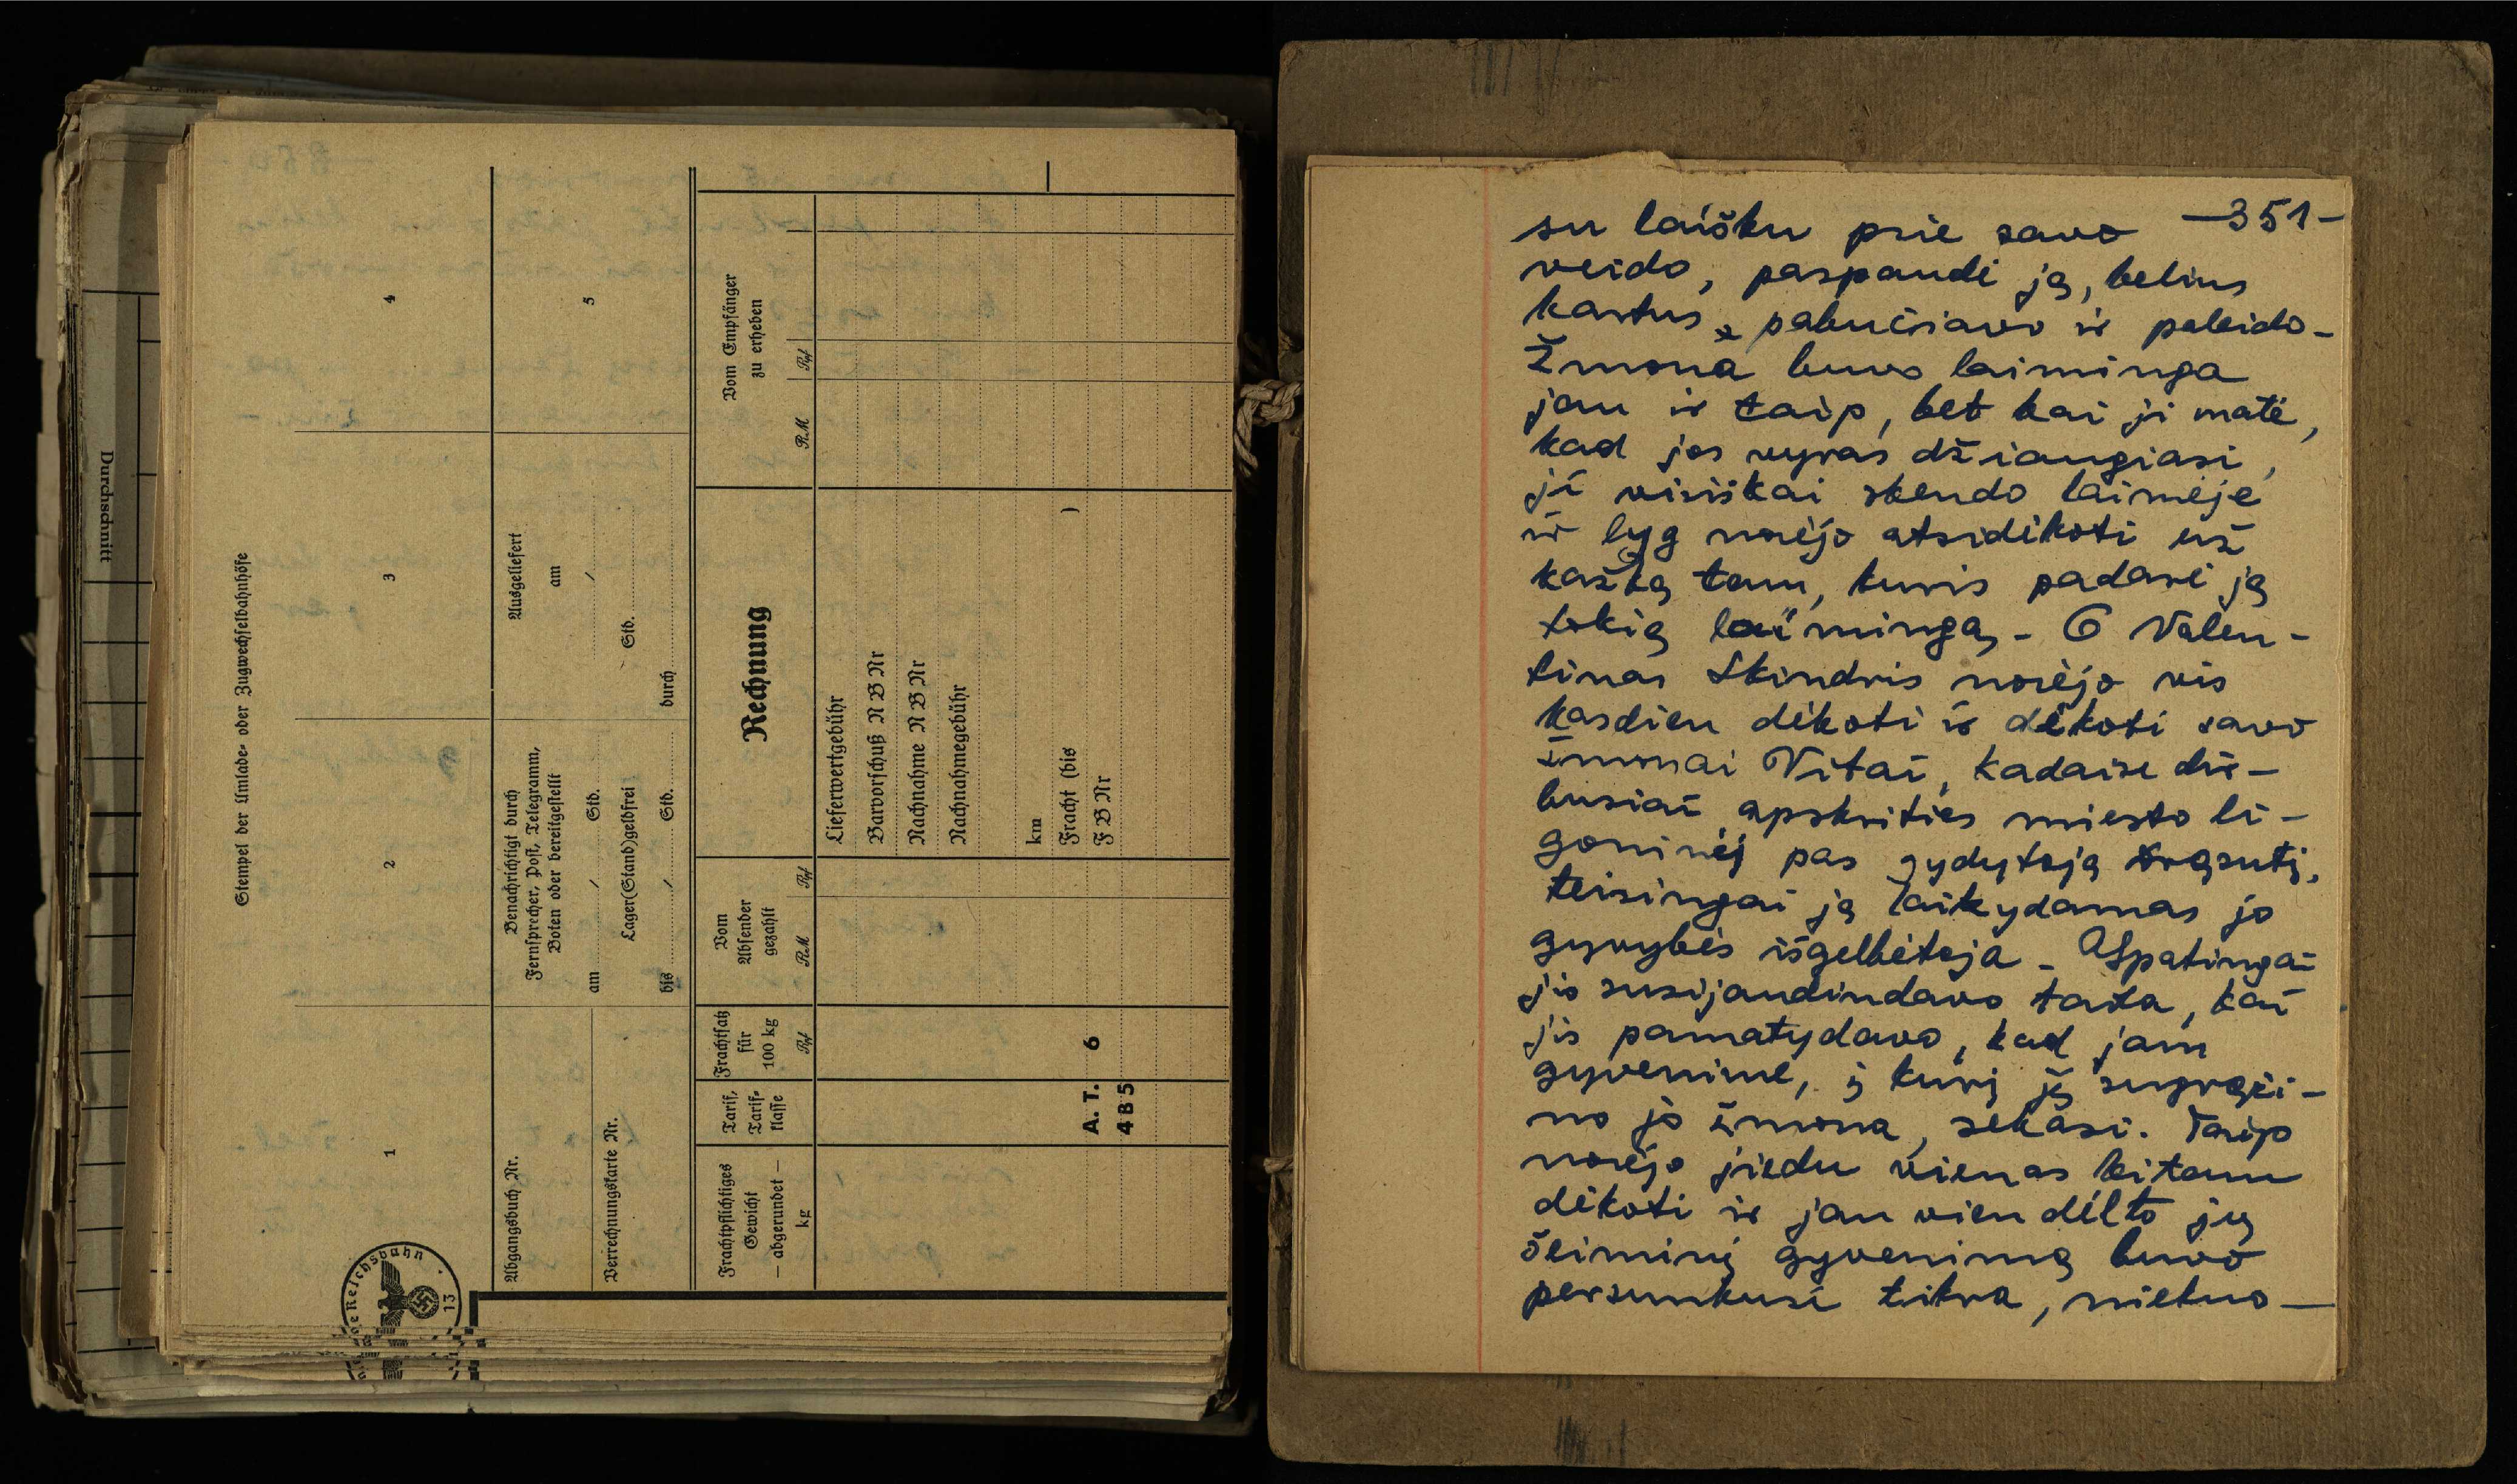 Durchschnitt
Stempel der Umlade- oder Zugwechselbahnhöfe
1
2
3
4
Abgangsbuch Nr.
Verrechnungskarte Nr.
Benachrichtigt durch
Fernsprecher, Post, Telegramm,
Boten oder bereitgestellt
am / Std.
Lager(Stand)geldfrei
bis / Std.
Ausgeliefert
am
/
Std.
durch
5
Frachtpflichtiges
Gewicht
— abgerundet —
kg
Tarif,
Tarif-
klasse
Frachtsatz
für
100 kg
Rpf
Vom
Absender
gezahlt
RM Rpf
Rechnung
Vom Empfänger
zu erheben
RM Rpf
Lieferwertgebühr
Barvorschuß N B Nr
Nachnahme N B Nr
Nachnahmegebühr
km
Fracht (bis )
F B Nr
A. T. 6
4 B 5
Reichsbahn
13
—351—
su laišku prie savo
veido, paspaudė ją, kelius
kartus pabučiavo ir paleido-
Žmona buvo laiminga
jau ir taip, bet kai ji matė,
kad jos vyras džiaugiasi,
ji visiškai skendo laimėje
ir lyg norėjo atsidėkoti už
kažką tam, kuris padarė ją
tokią laimingą - O Valen-
tinas Skindris norėjo vis
kasdien dėkoti ir dėkoti savo
žmonai Vitai, kadaise dir-
busiai apskrities miesto li-
goninėj pas gydytoją
teisingai ją laikydamas jo
gyvybės išgelbėtoja - Ypatingai
jis susijaudindavo tada, kai
jis pamatydavo, kad jam
gyvenime, į kurį jį sugrąži-
no jo žmona, sekasi. Taip
norėjo jiedu vienas kitam
dėkoti ir jau vien dėlto jų
šeiminį gyvenimą buvo
persunkusi tikra, nietuo—